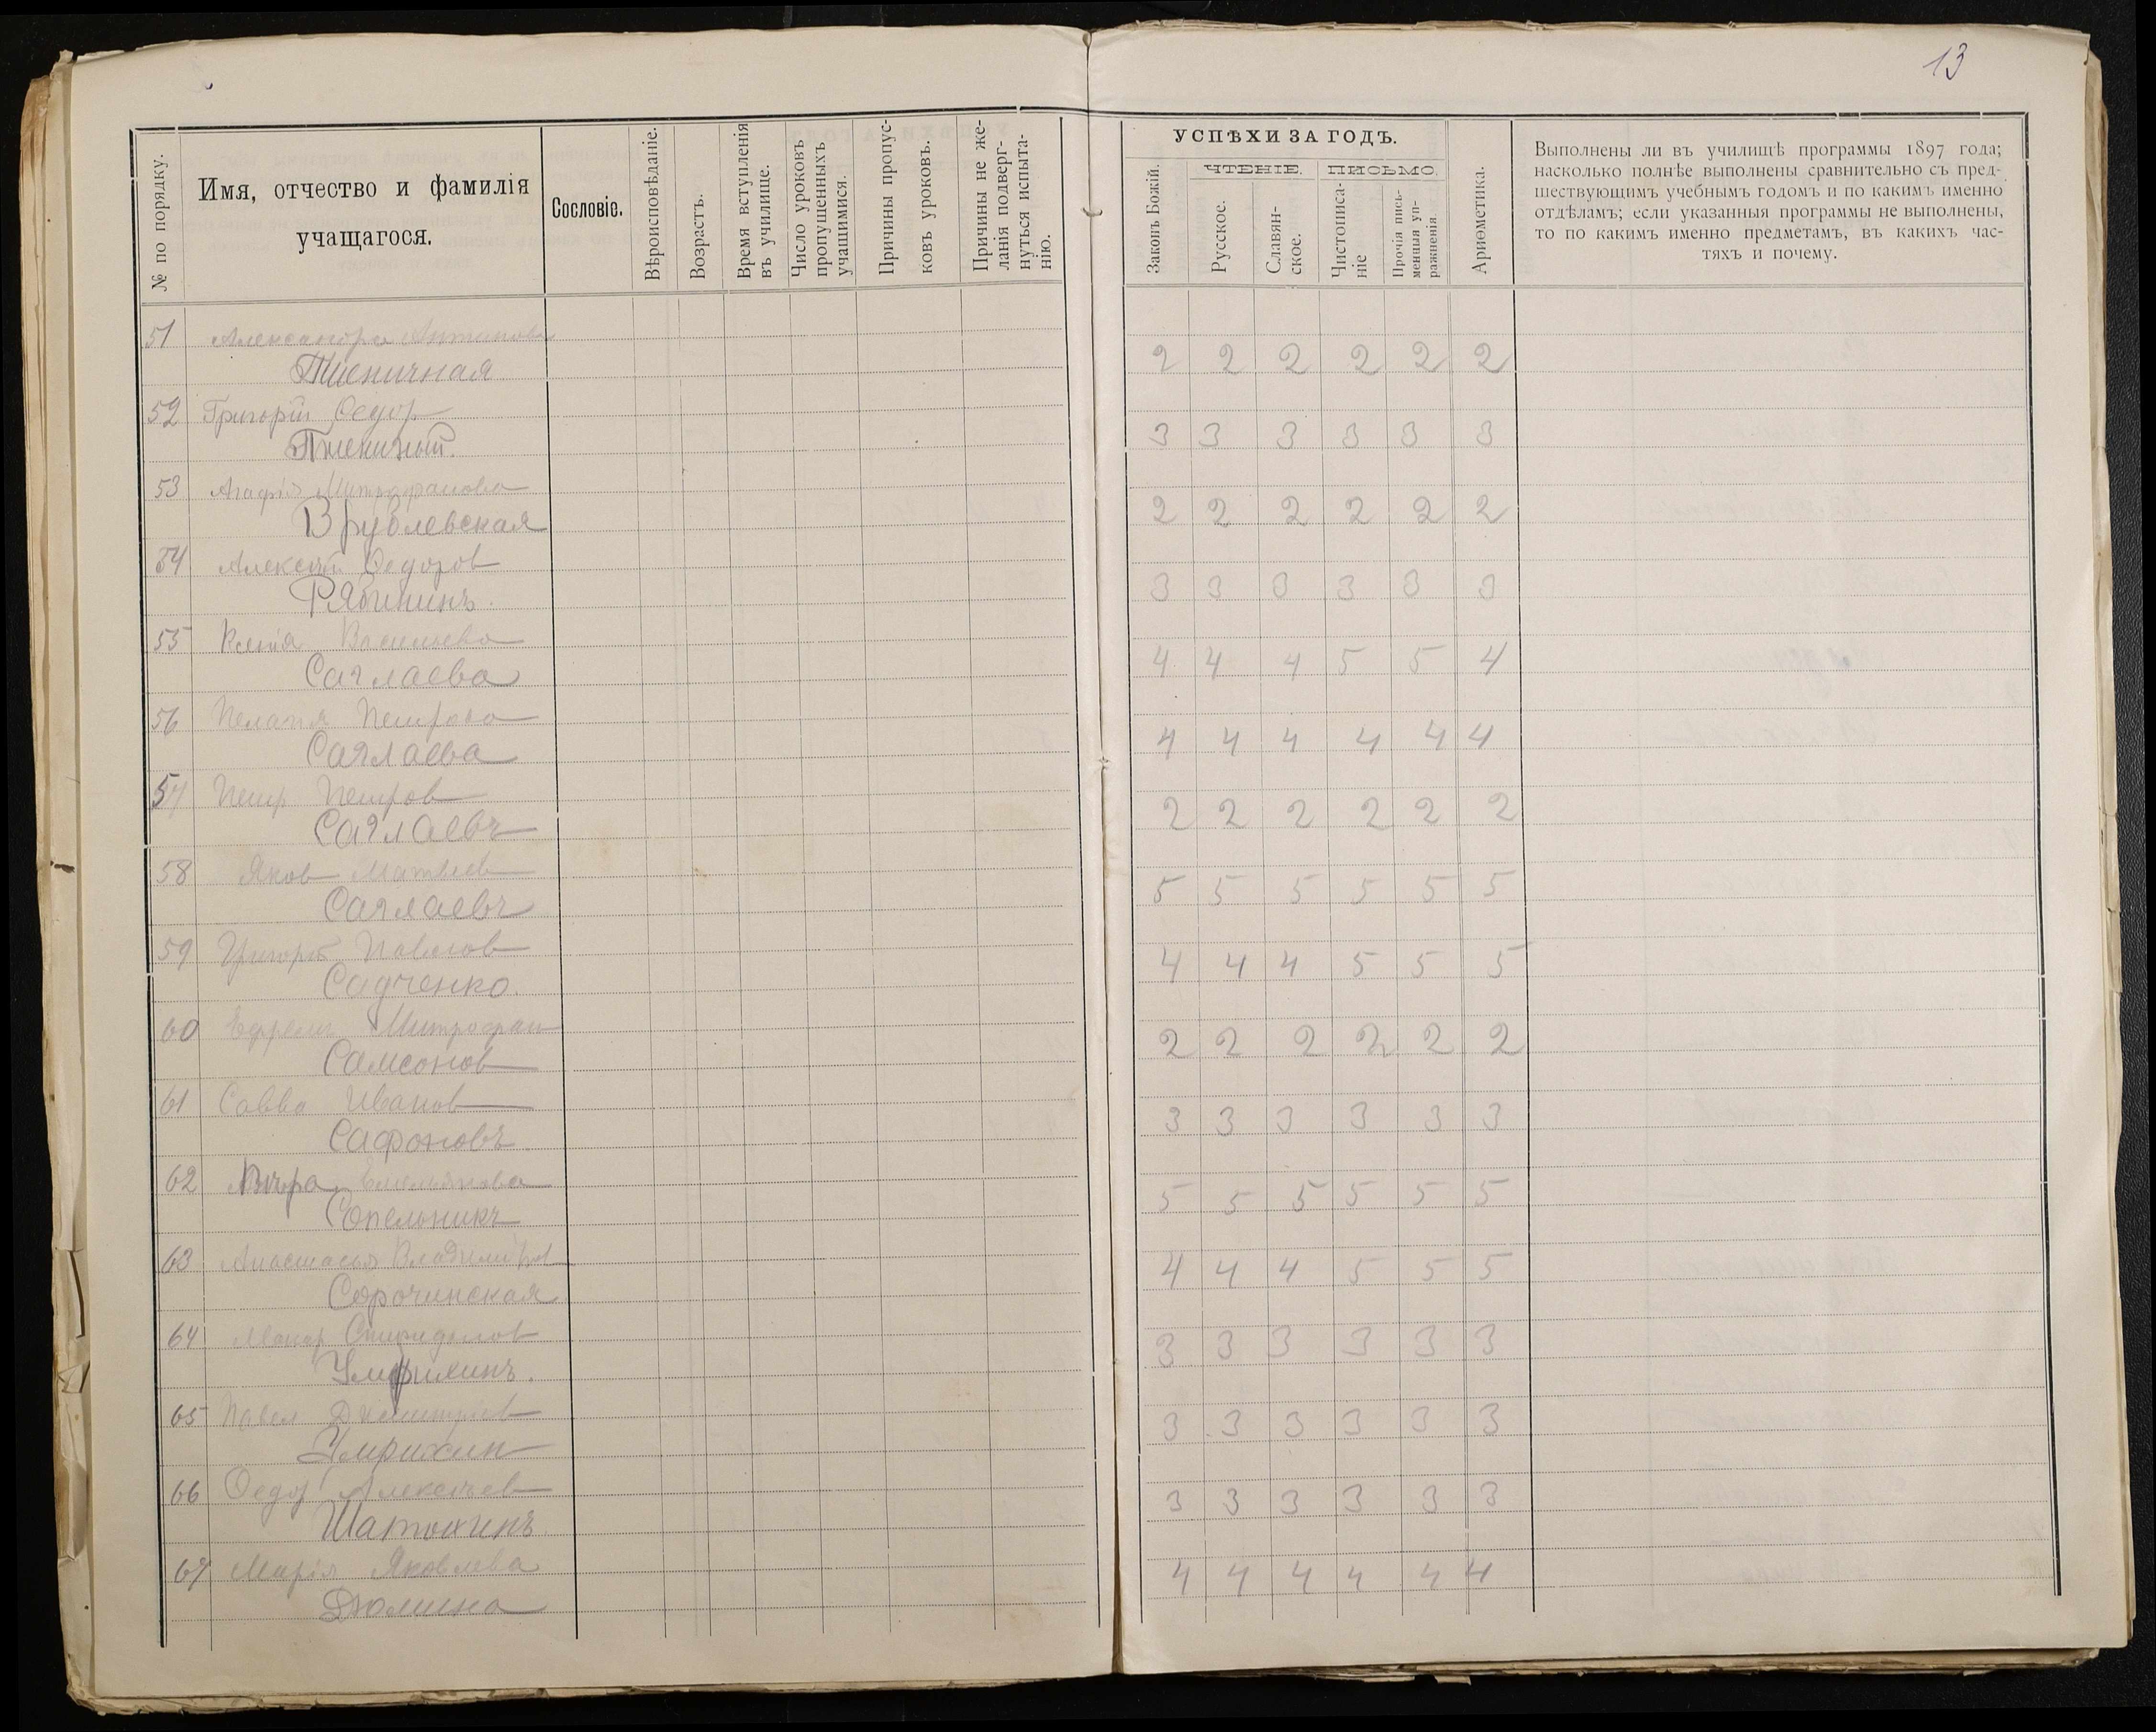 13
№ по порядку.
Имя, отчество и фамилія
учащагося.
Сословіе.
Вѣроисповѣданіе.
Возрастъ.
Время вступленія
въ училище.
Число уроковъ
пропущенныхъ
учащимися.
Причины пропус-
ковъ уроковъ.
Причины не же-
ланія подверг-
нуться испыта-
нію.
УСПѢХИ ЗА ГОДЪ.
Законъ Божій.
ЧТЕНІЕ.
Русское.
Славян-
ское.
ПИСЬМО.
Чистописа-
ніе
Прочія пись-
менныя уп-
ражненія.
Ариѳметика.
Выполнены ли въ училищѣ программы 1897 года;
насколько полнѣе выполнены сравнительно съ пред-
шествующимъ учебнымъ годомъ и по какимъ именно
отдѣламъ; если указанныя программы не выполнены,
то по какимъ именно предметамъ, въ какихъ час-
тяхъ и почему.
51 Александра Антонова
Пшеничная 2 2 2 2 2 2
52 Григорій Ѳедор
Пшеничный. 3 3 3 3 3 3
53 Агафія Митрофанова
Врублевская 2 2 2 2 2 2
54 Алексѣй Ѳедоров
Рябининъ. 3 3 3 3 3 3
55 Ксенія Васильева
Саглаева 4 4 4 5 5 4
56 Пелагія Петрова
Саглаева 4 4 4 4 4 4
57 Петр Петров
Саглаевъ 2 2 2 2 2 2
58 Яков Матвѣев
Саглаевъ 5 5 5 5 5 5
59 Григорій Павлов
Садченко. 4 4 4 5 5 5
60 Ефрем Митрофан
Самсонов 2 2 2 2 2 2
61 Савва Иванов
Сафоновъ 3 3 3 3 3 3
62 Вѣра Емельянова
Сопельникъ 5 5 5 5 5 5
63 Анастасья Владимиров
Сорочинская 4 4 4 5 5 5
64 Макар Спиридонов
Умрихинъ. 3 3 3 3 3 3
65 Павел Димитріев
Умрихин 3 3 3 3 3 3
66 Ѳедор Алексѣев
Шатохинъ 3 3 3 3 3 3
67 Марія Яковлева
Дюмина 4 4 4 4 4 4